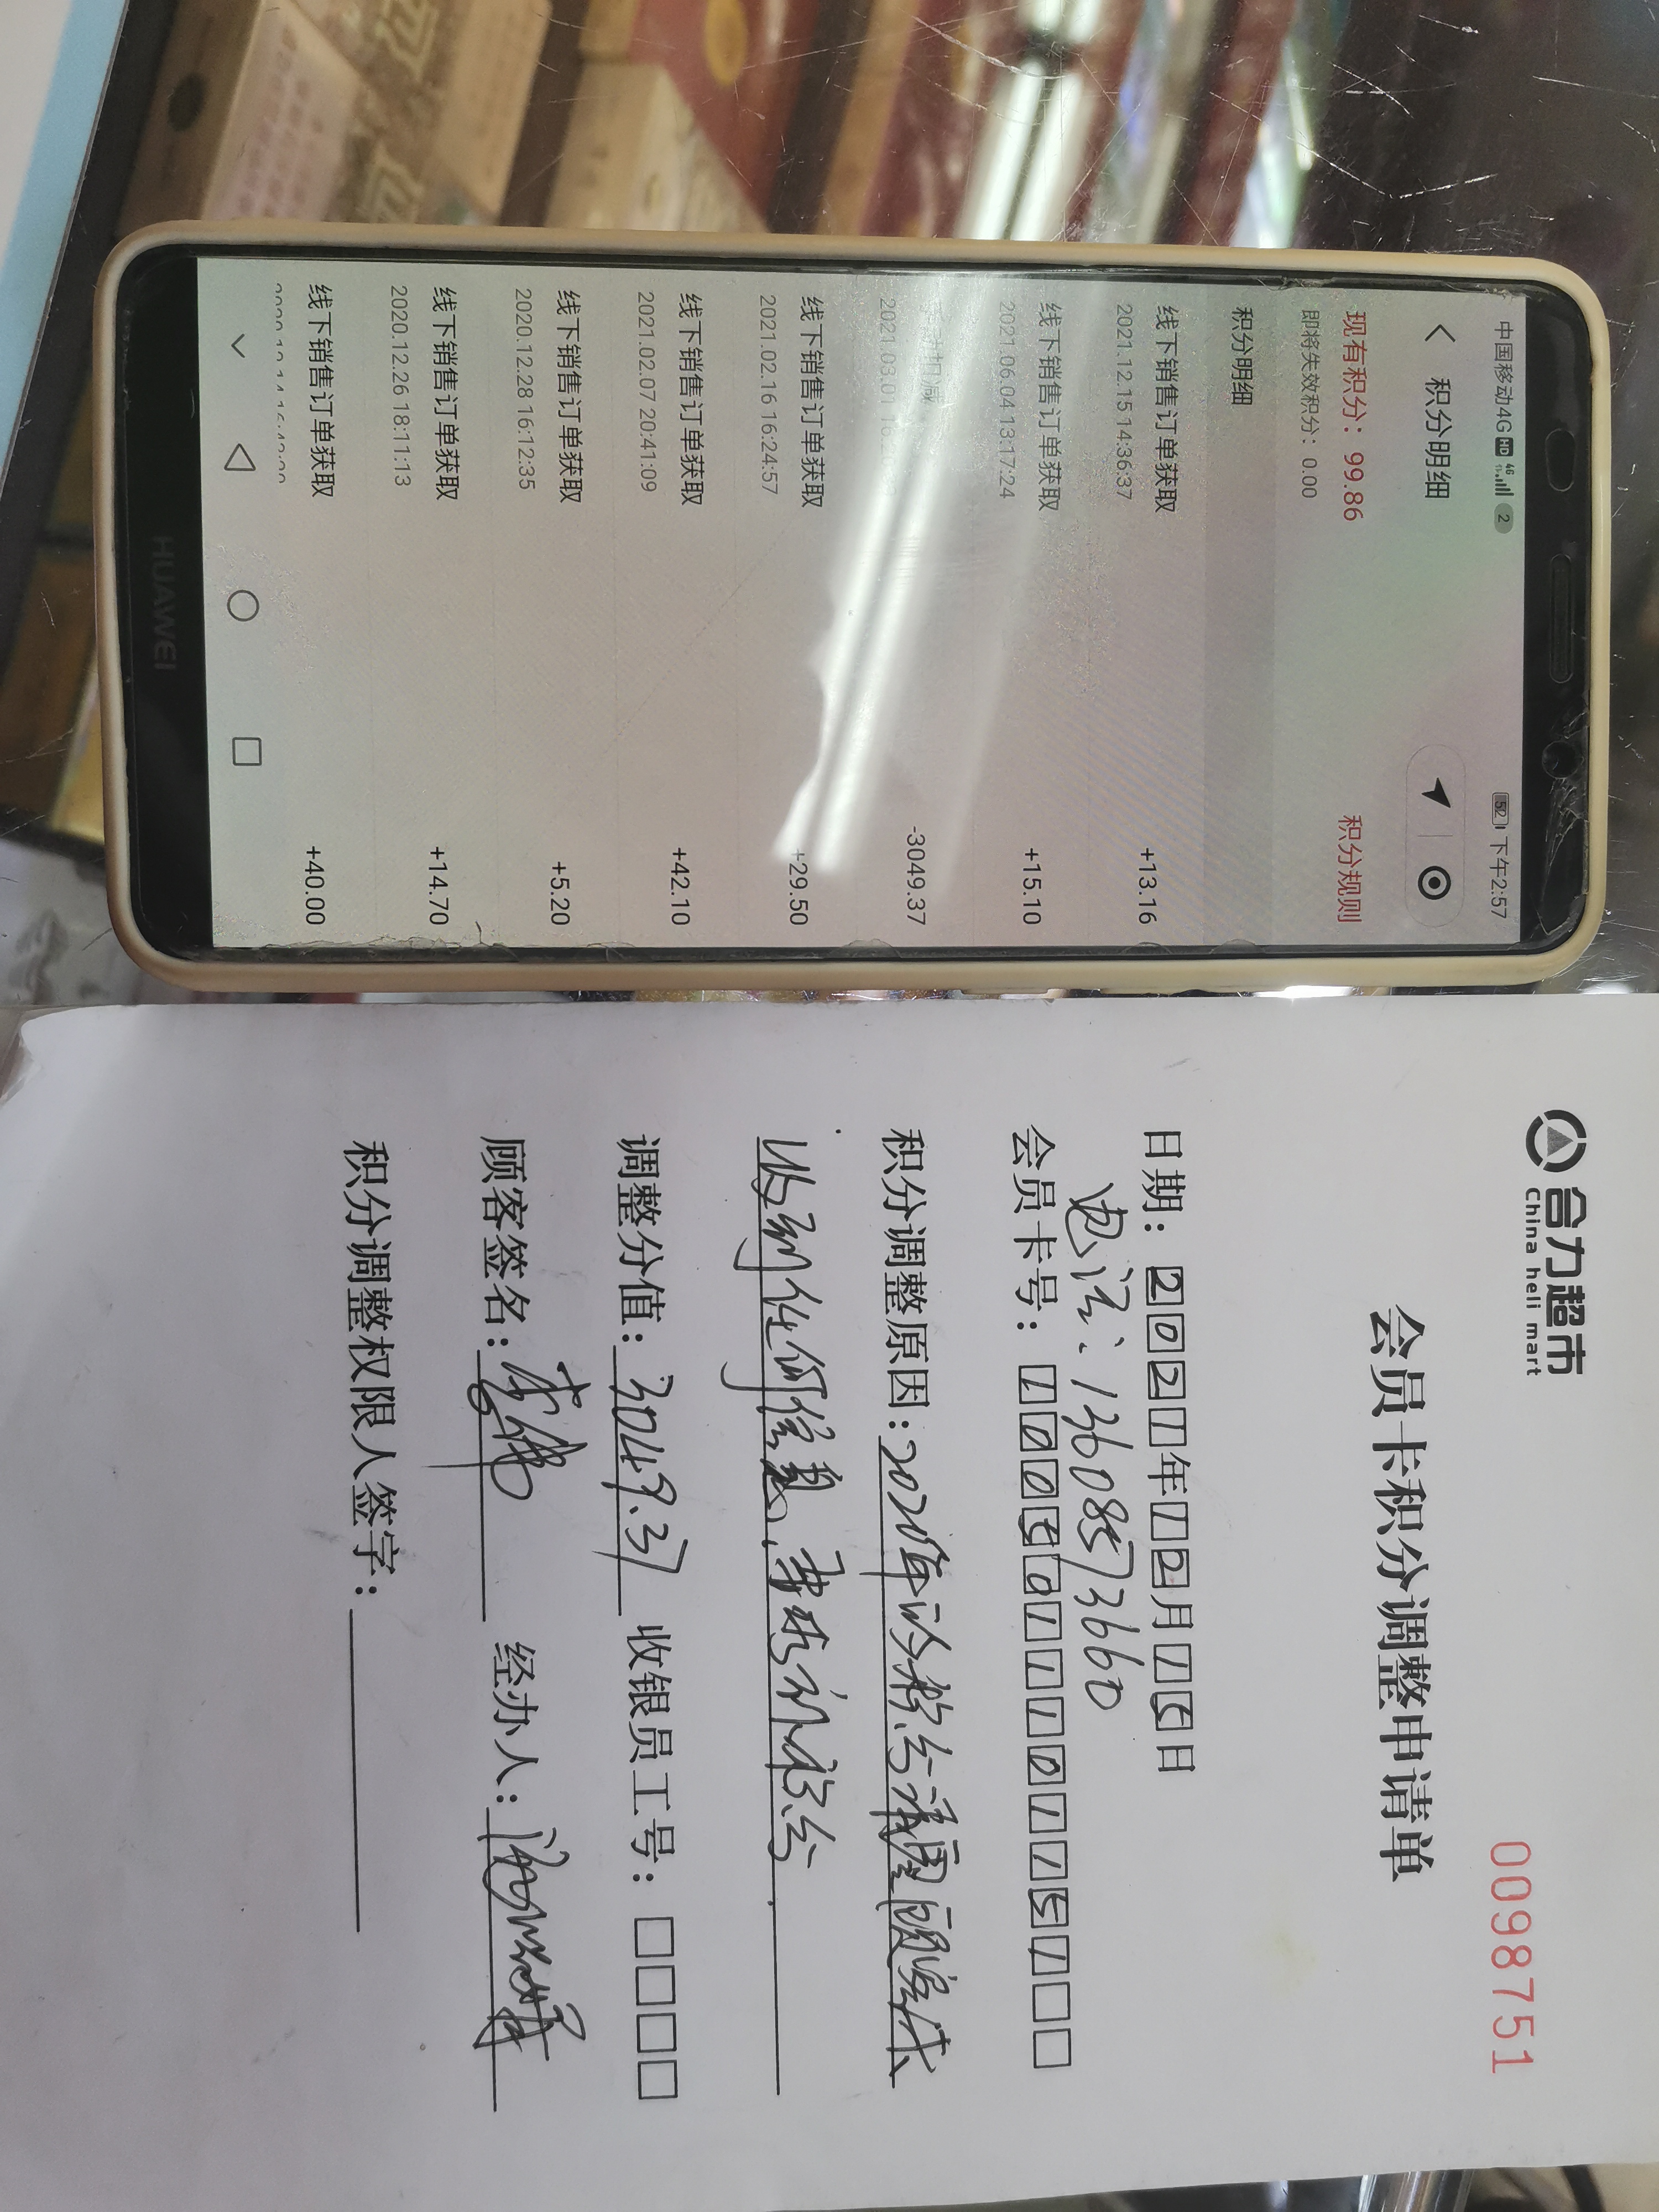 中国移动4G HD 46 2
52 下午2:57
积分明细
现有积分：99.86
积分规则
即将失效积分：0.00
积分明细
线下销售订单获取
+13.16
2021.12.15 14:36:37
线下销售订单获取
+15.10
2021.06.04 13:17:24
扣减
-3049.37
2021.03.01
线下销售订单获取
+29.50
2021.02.16 16:24:57
线下销售订单获取
+42.10
2021.02.07 20:41:09
线下销售订单获取
+5.20
2020.12.28 16:12:35
线下销售订单获取
+14.70
2020.12.26 18:11:13
线下销售订单获取
+40.00
HUAWEI
合力超市
China heli mart
0098751
会员卡积分调整申请单
日期：2021年12月15日
电话：13608573660
会员卡号：
积分调整原因：2020年的积分清零顾客没
收到任何信息，要求补积分
调整分值：3049.37 收银员工号：
顾客签名： 经办人：
积分调整权限人签字：